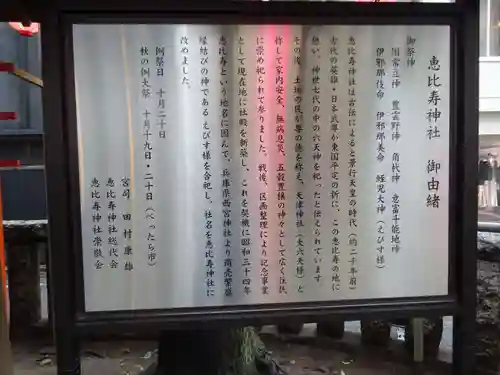 恵比寿神社　御由緒
御祭神
国常立神　豊雲野神　角杙神　意富斗能地神
伊邪那岐命　伊邪那美命　蛭児大神（えびす様）
恵比寿神社は古伝によると景行天皇の時代（約二千年前）
古代の英雄・日本武尊が東国平定の折に、この恵比寿の地に
憩い、神世七代の中の六天神を祀ったと伝えられています
その後、土地の民が尊の徳を称え、天津神社（大六天様）と
称して家内安全、無病息災、五穀豊穣の神々として広く住民
に崇め祀られて参りました。戦後、区画整理により記念事業
として現在地に社殿を新築し、これを契機に昭和三十四年
恵比寿という地名に因んで、兵庫県西宮神社より商売繁盛
縁結びの神である えびす様を合祀し、社名を恵比寿神社に
改めました。
例祭日　十月二十日
秋の例大祭　十月十九日・二十日（べったら市）
宮司　田村康雄
恵比寿神社総代会
恵比寿神社崇敬会